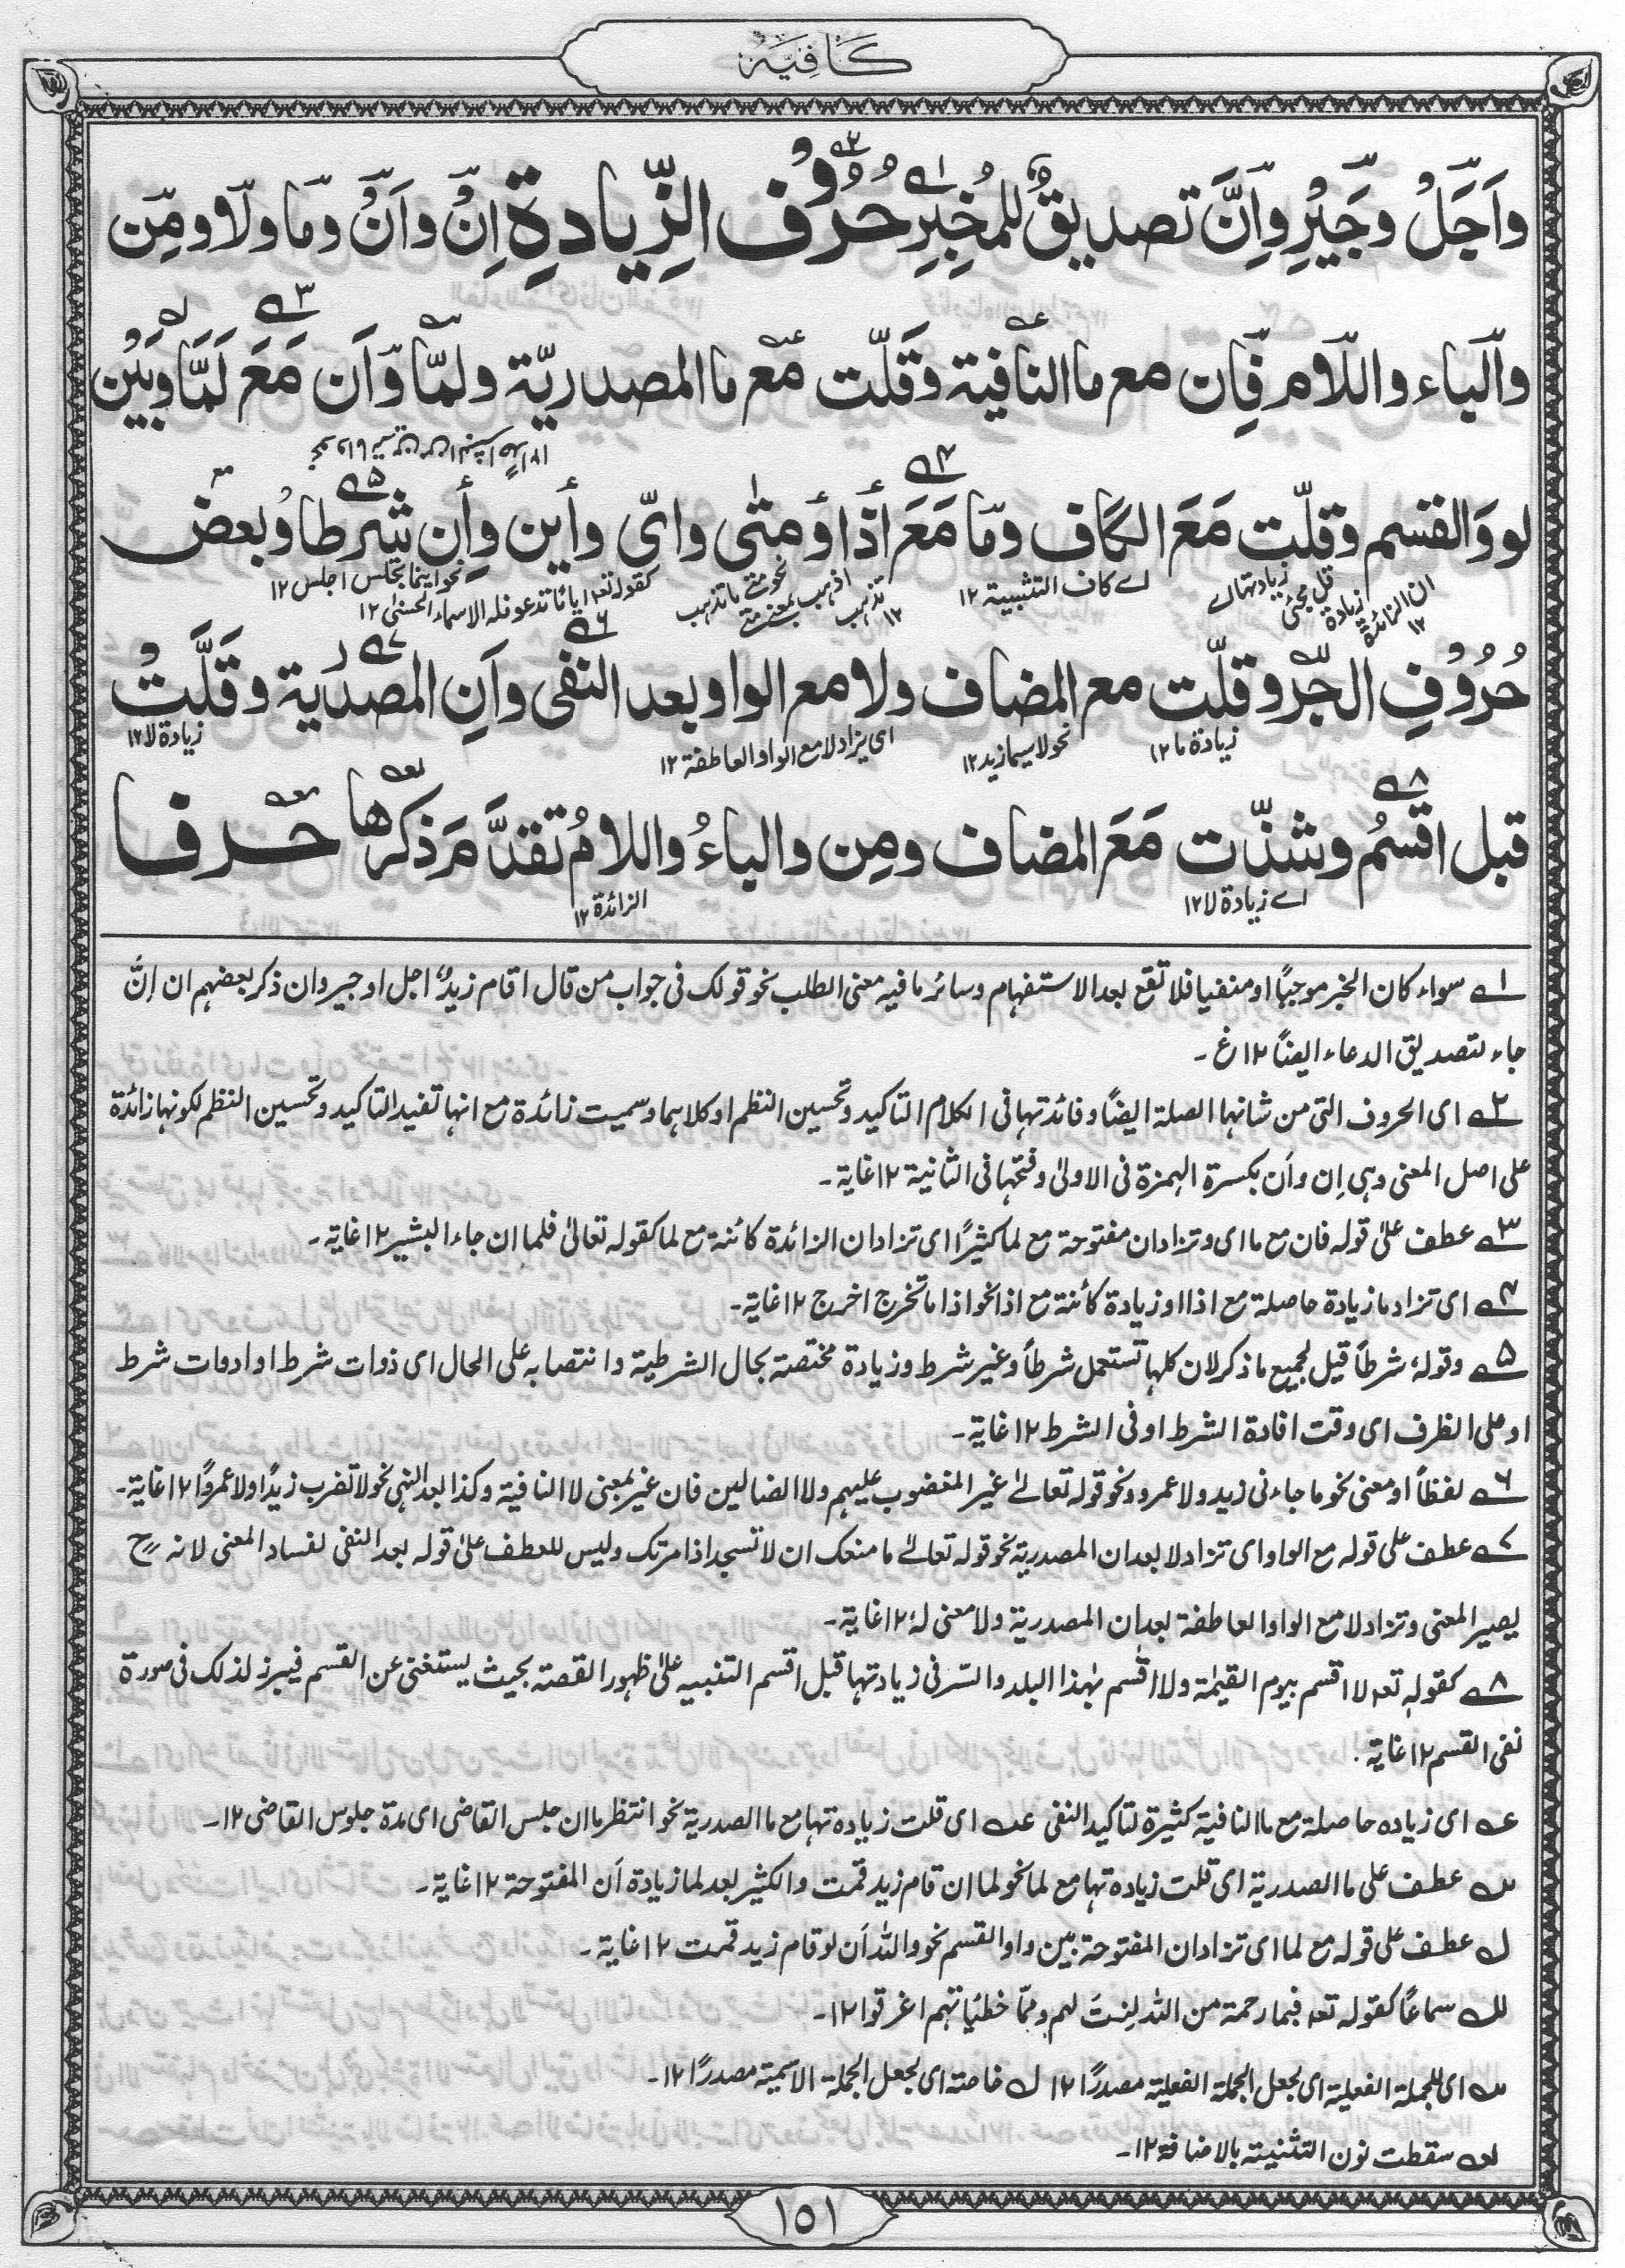 كَافِيَه
وَاَجَلْ وجَيْرِ وَاِنَّ تصديقٌ للمُخبِرِ حُرُوْف الزِّيادةِ اِنْ واَنْ وما ولا ومِن
والباء واللام فَاِن مع ما النافية وقَلّت مع ما المصدريّة ولمّا وَاَن مَعَ لَمَّا وبَيْن
لو وَالقسم وقلّت مَعَ الكاف وما مَعَ اذا ومتى وايّ وأين وإن شرطا وبعض
ان الزائدة ١٢
اے كاف التشبيه ١٢
نحو اينما تجلس اجلس ١٢
حُرُوْفِ الجرّ وقلّت مع المضاف ولا مع الواو بعد النفى واَنِ المصدرية وقلَّتْ
زيادة ما ١٢
نحو لا سيما زيد ١٢
اى يزاد لا مع الواو العاطفة ١٢
زيادة لا ١٢
قبل اقسمُ وشذّت مَعَ المضاف ومِن والباءُ واللامُ تقدَّم ذكرها حرفا
اے زيادة لا ١٢
الزائدة ١٢
١ سواء كان الخبر موجبًا او منفيا فلا تقع بعد الاستفهام وسائر ما فيه معنى الطلب نحو قولك فى جواب من قال اقام زيدٌ اجل او جير وان ذكر بعضهم ان اِنَّ
جاء لتصديق الدعاء ايضًا ١٢ غ ـ
٢ اى الحروف التى من شانها الصلة ايضًا وفائدتها فى الكلام التاكيد وتحسين النظم او كلاهما وسميت زائدة مع انها تفيد التاكيد وتحسين النظم لكونها زائدة
على اصل المعنى وهى اِن واَن بكسرة الهمزة فى الاولىٰ وفتحها فى الثانية ١٢ غاية ـ
٣ عطف علىٰ قوله فان مع ما اى وتزاد ان مفتوحة مع لما كثيرًا اى تزاد ان الزائدة كائنة مع لما كقوله تعالىٰ فلما ان جاء البشير ١٢ غاية ـ
٤ اى تزاد ما زيادة حاصلة مع اذا او زيادة كائنة مع اذا نحو اذا ما تخرج اخرج ١٢ غاية ـ
٥ وقولهٗ شرطاً قيل لجميع ما ذكر لان كلها تستعمل شرطاً وغير شرط وزيادة مختصة بحال الشرطية وانتصابه على الحال اى ذوات شرط او ادوات شرط
او على الظرف اى وقت افادة الشرط او فى الشرط ١٢ غاية ـ
٦ لفظاً او معنى نحو ما جاءنى زيد ولا عمرو ونحو قوله تعالےٰ غير المغضوب عليهم ولا الضالين فان غير بمعنى لا النافية وكذا بعد النهى نحو لا تضرب زيدًا ولا عمروًا ١٢ غاية ـ
٧ عطف على قوله مع الواو اى تزاد لا بعد ان المصدرية نحو قوله تعالےٰ ما منعك ان لا تسجد اذ امرتك وليس للعطف علىٰ قوله بعد النفى لفساد المعنى لانه ح
يصير المعنى وتزاد لا مع الواو العاطفة بعد ان المصدرية ولا معنى لهٗ ١٢ غاية ـ
٨ كقوله تعـ لا اقسم بيوم القيٰمة ولا اقسم بهٰذا البلد والسّر فى زيادتها قبل اقسم التنبيه علىٰ ظهور القصة بحيث يستغنى عن القسم فيبرز لذلك فى صورة
نفى القسم ١٢ غاية .
عـه اى زياده حاصلة مع ما النافية كثيرة لتاكيد النفى عـه اى قلت زيادة تها مع ما الصدرية نحو انتظر ما ان جلس القاضى اى مدة جلوس القاضى ١٢ ـ
سه عطف على ما الصدرية اى قلت زيادة تها مع لما نحو لما ان قام زيد قمت والكثير بعد لما زيادة اَن المفتوحة ١٢ غاية ـ
لـه عطف على قوله مع لما اى تزاد ان المفتوحة بين واو القسم نحو واللّٰه اَن لو قام زيد قمت ١٢ غاية ـ
للـه سماعًا كقوله تعـ فبما رحمة من اللّٰه لِنتَ لهم وممّا خطيْاتهم اغرقوا ١٢ ـ
سه اى للجملة الفعلية اى لجعل الجملة الفعلية مصدرًا ١٢ لـه خاصة اى لجعل الجملة الاسمية مصدرًا ١٢ ـ
لعـه سقطت نون التثنية بالاضافة ١٢ ـ
١٥١